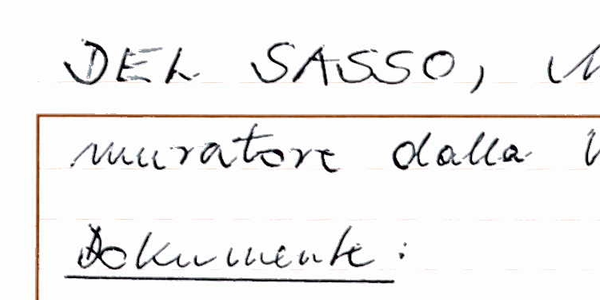 DEL SASSO,
muratore dalla
Dokumente: